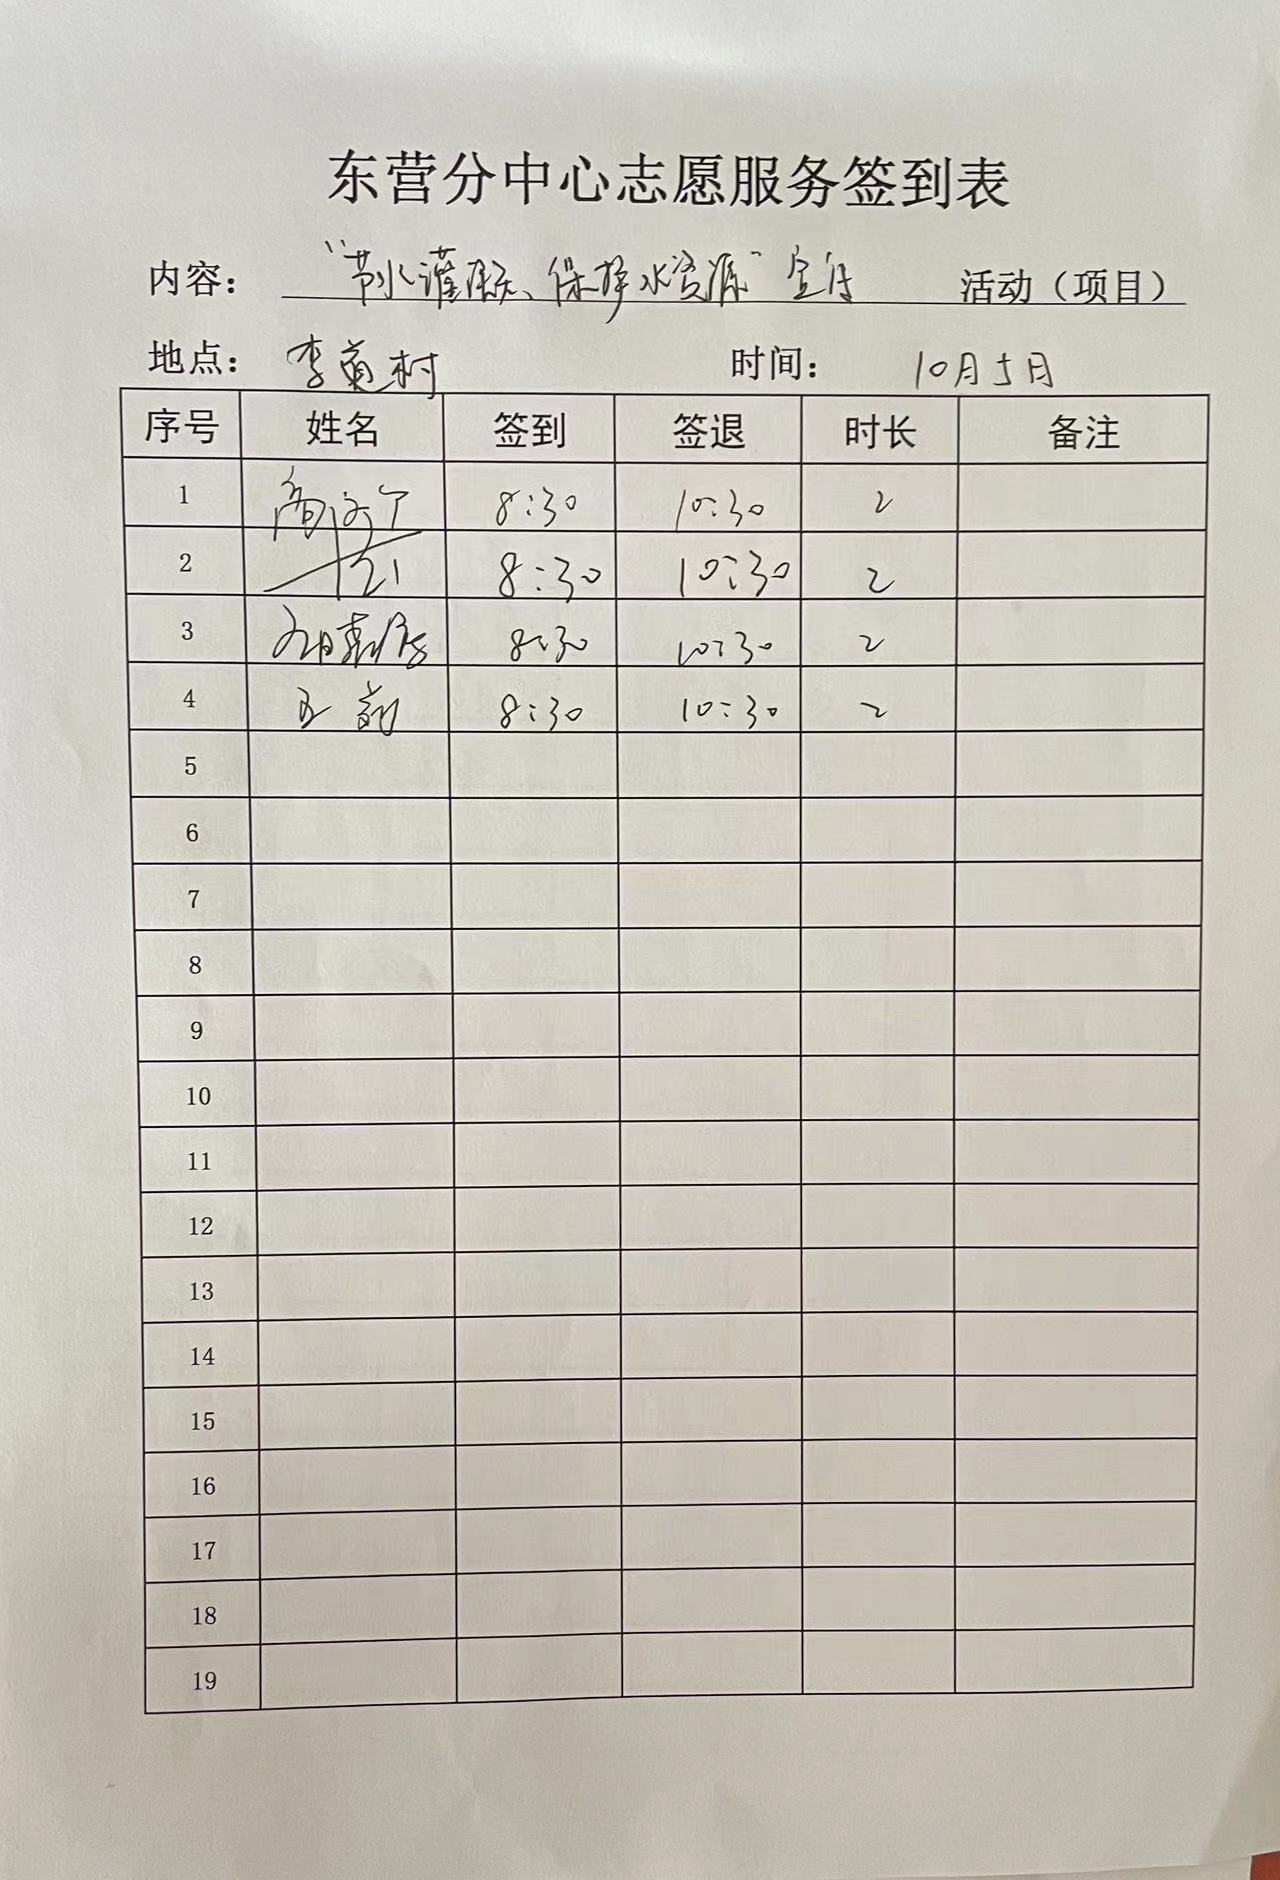 东营分中心志愿服务签到表
内容： “节水灌溉、保护水资源”宣传 活动（项目）
地点： 李菊村 时间： 10月5日
序号 姓名 签到 签退 时长 备注
1 8:30 10:30 2
2 8:30 10:30 2
3 8:30 10:30 2
4 8:30 10:30 2
5
6
7
8
9
10
11
12
13
14
15
16
17
18
19